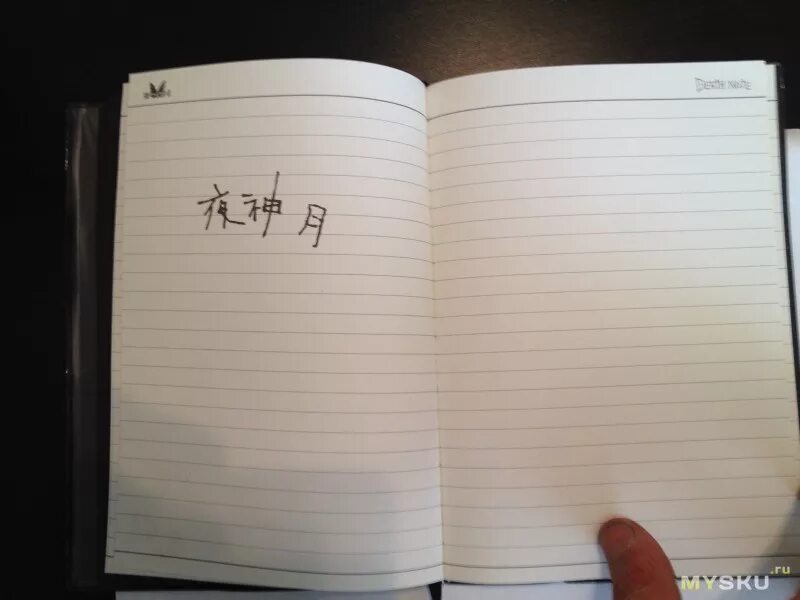 DEATH NOTE
夜神月
MYSKU.ru